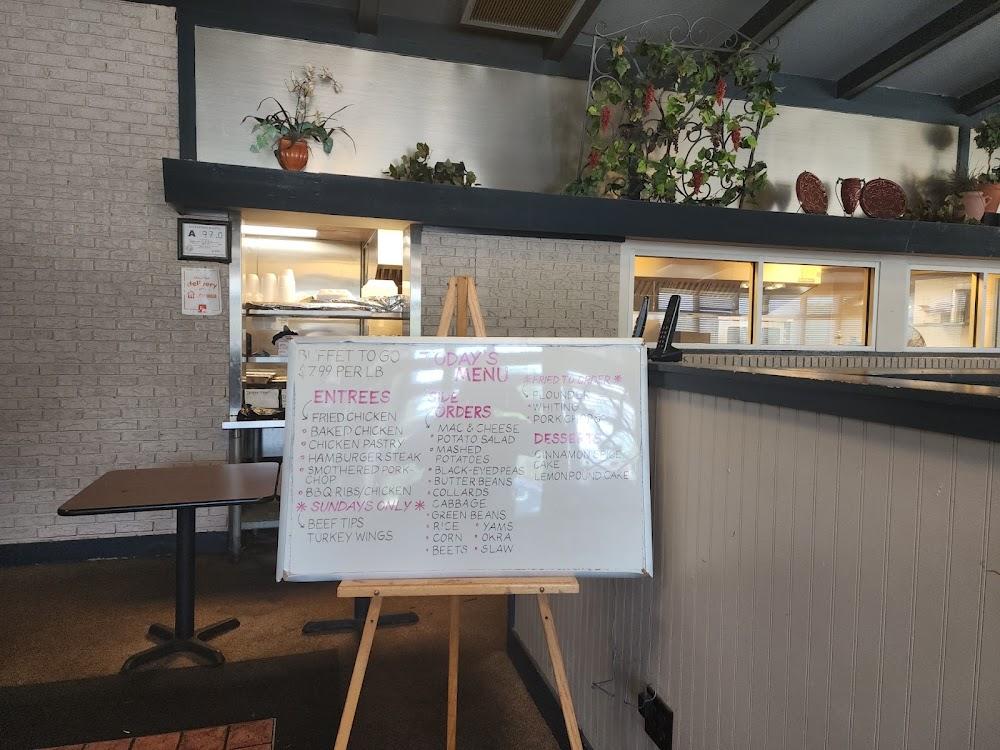 A 97.0
delivery
BUFFET TO GO
$7.99 PER LB
TODAY'S
MENU
ENTREES
FRIED CHICKEN
BAKED CHICKEN
CHICKEN PASTRY
HAMBURGER STEAK
SMOTHERED PORK-
CHOP
BBQ RIBS/CHICKEN
* SUNDAYS ONLY *
BEEF TIPS
TURKEY WINGS
SIDE
ORDERS
MAC & CHEESE
POTATO SALAD
MASHED
POTATOES
BLACK-EYED PEAS
BUTTER BEANS
COLLARDS
CABBAGE
GREEN BEANS
RICE • YAMS
CORN • OKRA
BEETS • SLAW
* FRIED TO ORDER *
FLOUNDER
WHITING
PORK CHOPS
DESSERTS
CINNAMON SPICE
CAKE
LEMON POUND CAKE